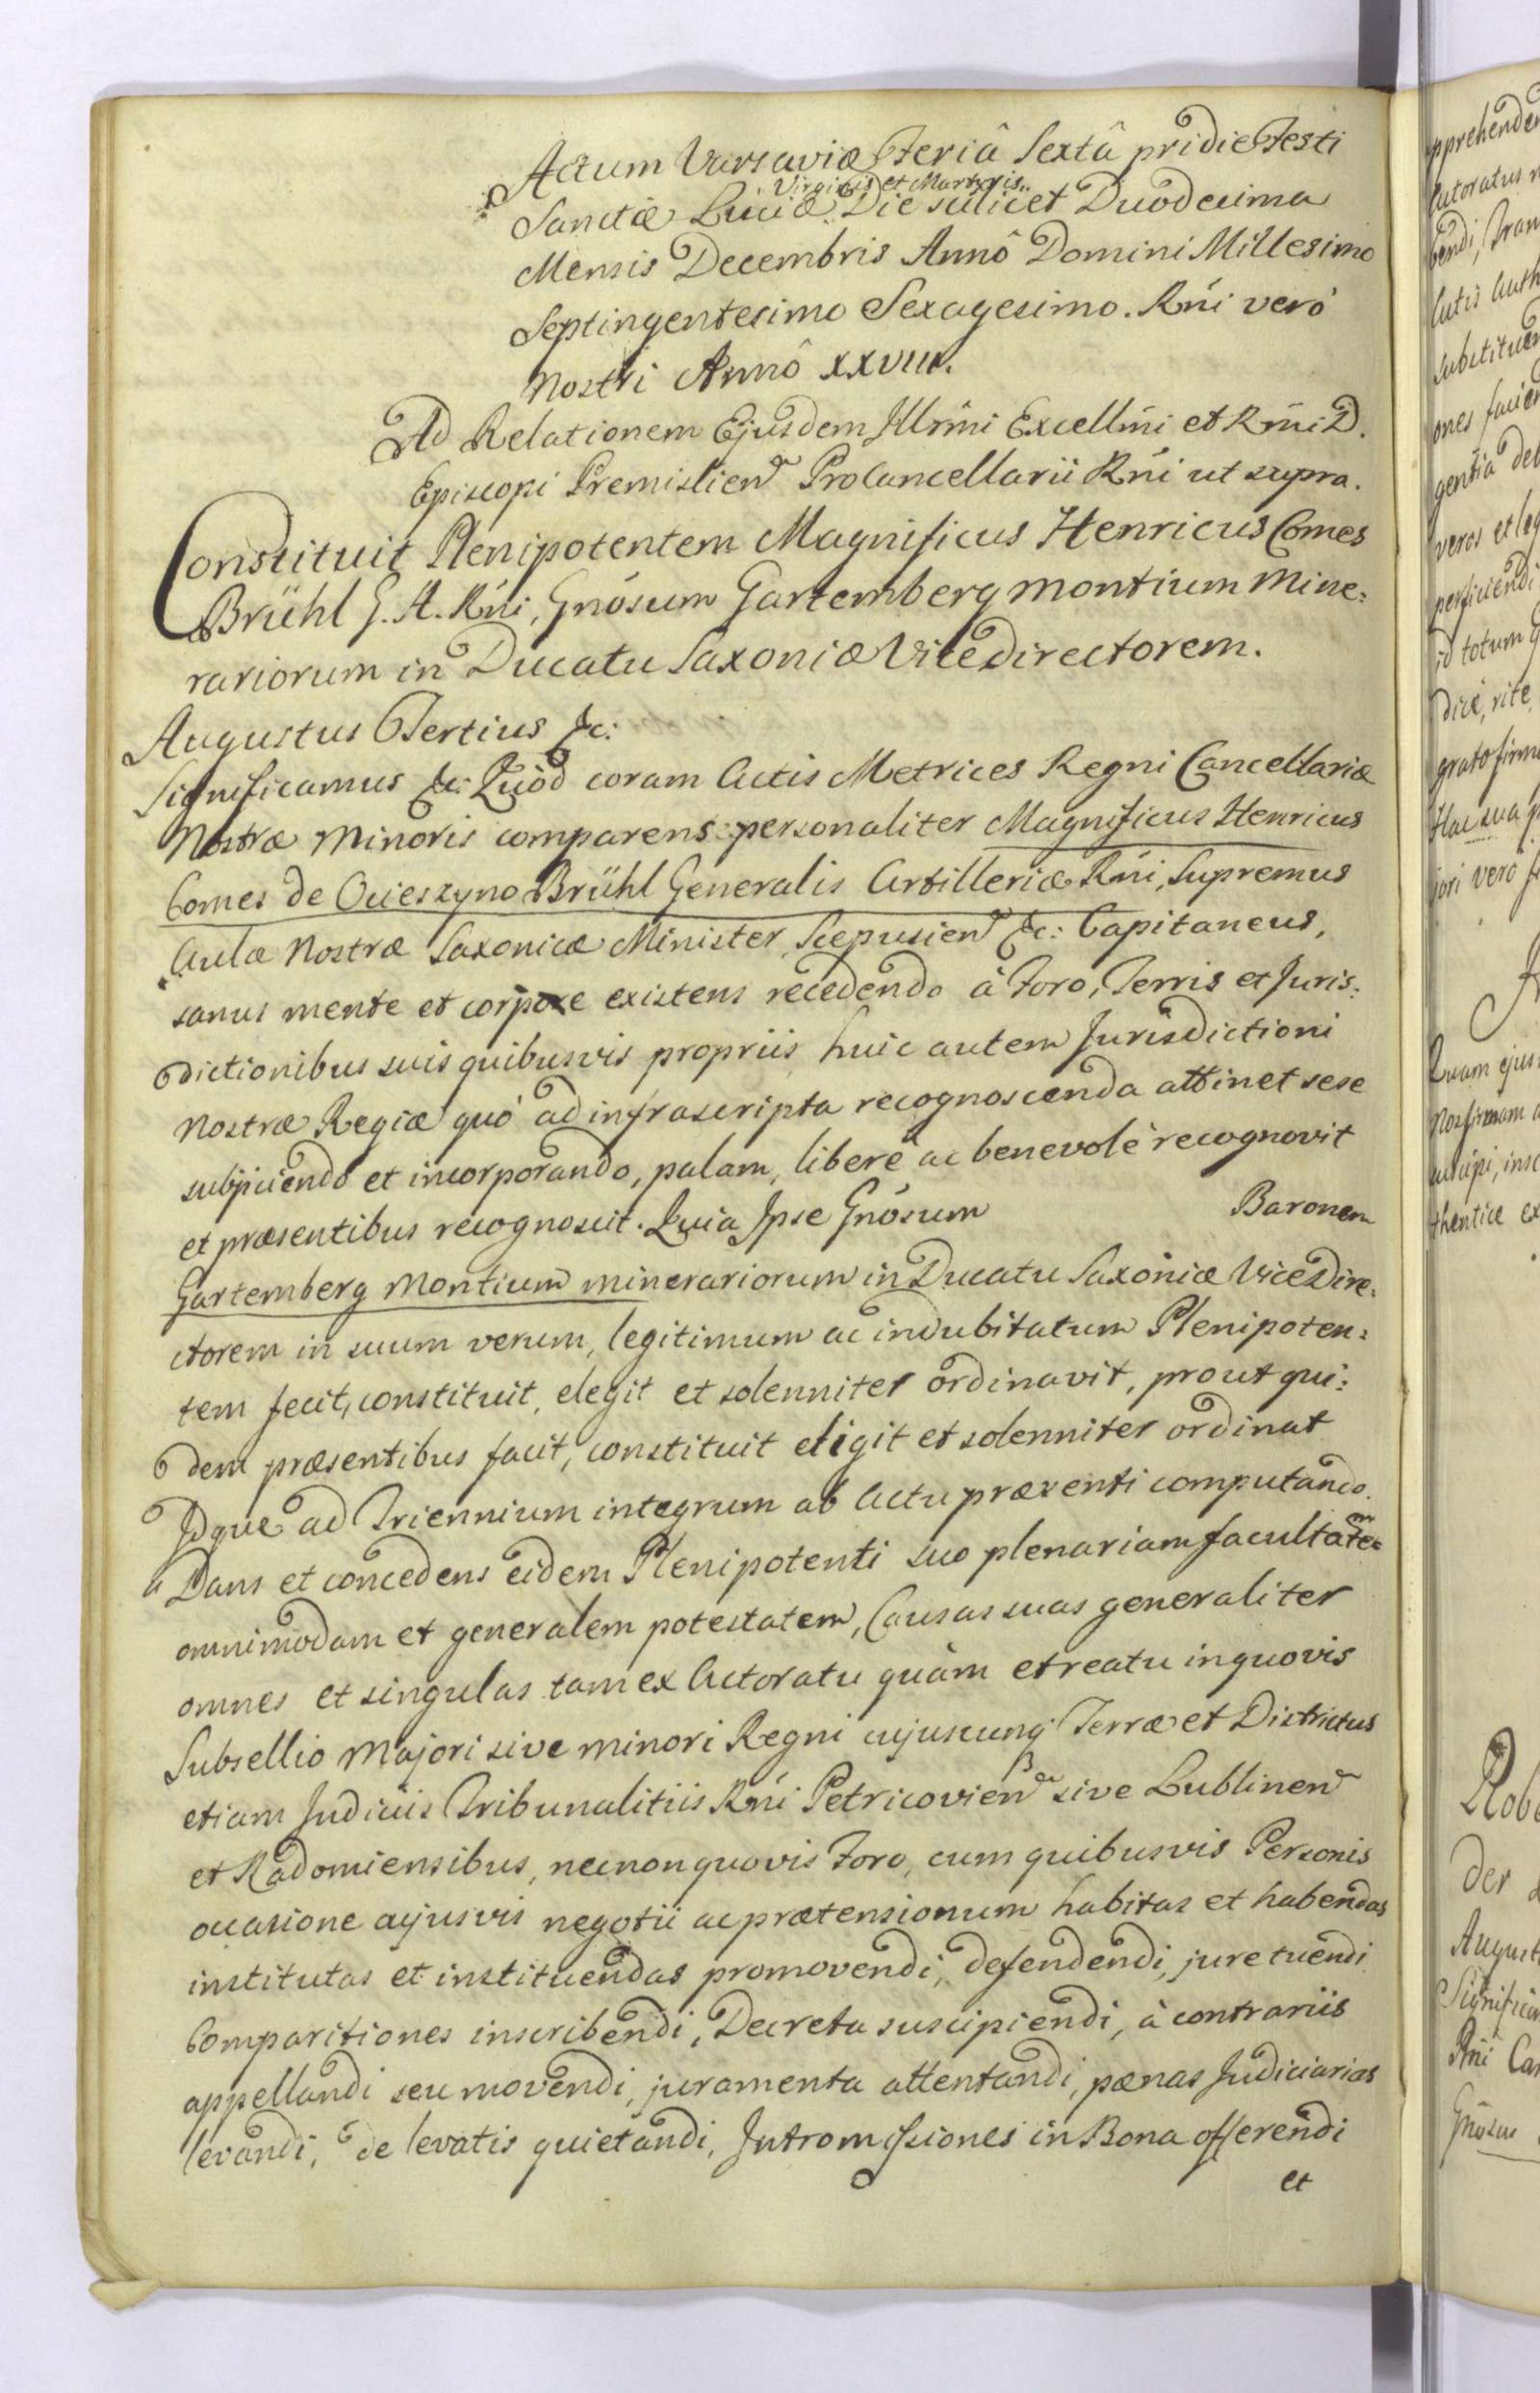 Actum Varsaviæ Feriâ Sextâ pridie Festi
Virginis et Martyris
Sanctæ Luciæ Die scilicet Duodecima
Mensis Decembris Annô Domini Millesimo
Septingentesimo Sexagesimo. Rńi verò
Nostri Annô XXVIII.
Ad Relationem Ejusdem Illrmi Excellmi et Rmi D.
Episcopi Premislien Procancellarii Rńi ut supra.
Constituit Plenipotentem Magnificus Henricus Comes
Brühl G. A. Rńi, Gnósum Gartemberg Montium Mine:
rariorum in Ducatu Saxoniæ Vicedirectorem.
Augustus Tertius &c:
Significamus &c: Quòd coram Actis Metrices Regni Cancellariæ
Nostræ Minoris comparens personaliter Magnificus Henricus
Comes de Ocieszyno Brühl Generalis Artilleriæ Rńi, Supremus
Aulæ Nostræ Saxonicæ Minister, Scepusien &c: Capitaneus,
sanus mente et corpore existens recedendo à Foro, Terris et Juris:
dictionibus suis quibusvis propriis, huic autem Jurisdictioni
Nostræ Regiæ quò ad infrascripta recognoscenda attinet sese
subjiciendo et incorporando, palam, liberè ac benevolè recognovit
et præsentibus recognoscit. Quia Ipse Gnósum Baronem
Gartemberg Montium minerariorum in Ducatu Saxoniæ ViceDire:
ctorem in suum verum, legitimum ac indubitatum Plenipoten:
tem fecit, constituit, elegit et solenniter ordinavit, prout qui:
dem præsentibus facit, constituit eligit et solenniter ordinat
Idque ad Triennium integrum ab Actu præsenti computando.
Dans et concedens eidem Plenipotenti suo plenariam facultatem
omnimodam et generalem potestatem, Causas suas generaliter
omnes et singulas tam ex Actoratu quàm et reatu in quovis
Subsellio Majori sive minori Regni cujuscunq Terræ et Districtus
etiam Judiciis Tribunalitiis Rńi Petricovien sive Lublinen
et Radomiensibus, necnon quovis Foro, cum quibusvis Personis
occasione cujusvis negotii ac prætensionum habitas et habendas
institutas et instituendas promovendi, defendendi, jure tuendi
Comparitiones inscribendi, Decreta suscipiendi, à contrariis
appellandi seu movendi, juramenta attentandi, pænas Judiciarias
levandi, de levatis quietandi, Intromissiones in Bona offerendi
et